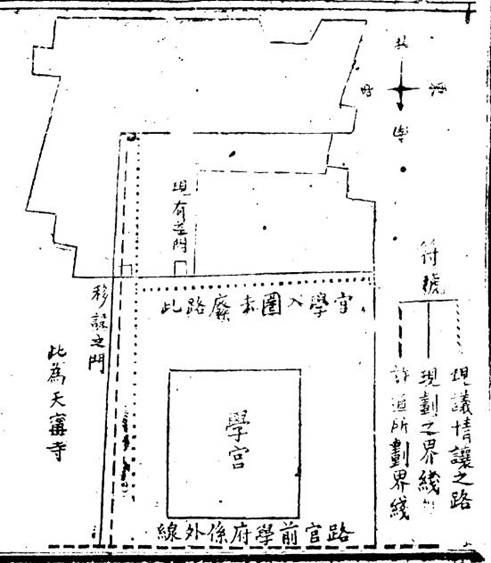 北
現有之門
此路廢未圈入學宮
移設之門
此為天甯寺
學宮
線外係府學前官路
符號
現議情讓之路
現劃之界綫
許道所劃界綫